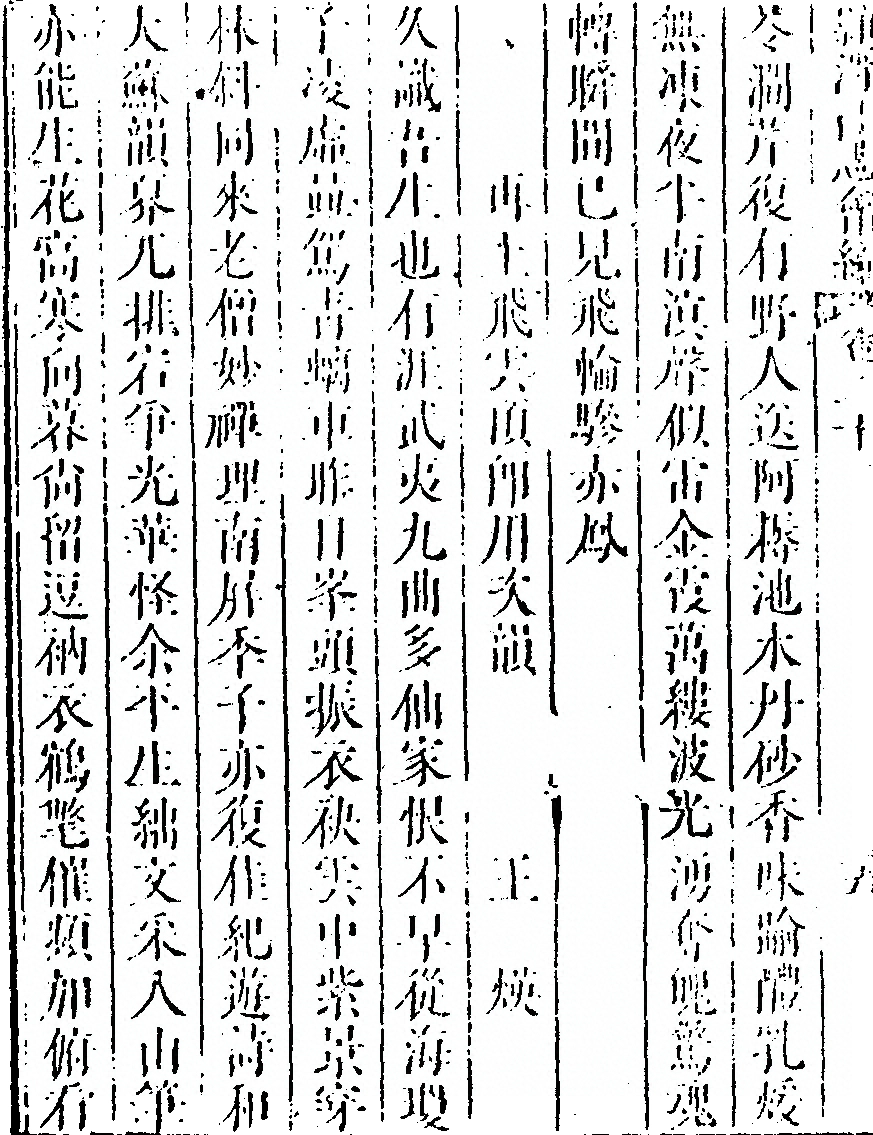 苓澗芹復有野人送阿耨池水丹砂香味踰醴乳煖
無凍夜半南溟聲似雷金霞萬縷波光沸奪魄驚魂
轉瞬間已見飛輪驂赤鳳
再上飛雲頂即用次韻 王煐
久識吾生也有涯武夷九曲多仙家恨不早從海瓊
子凌虛並駕青螭車昨日峯頭振衣袂雲中紫景穿
林斜同來老僧妙禪理南屏季子亦復佳紀遊詩和
大蘇韻暴兀排宕爭光華怪余平生絀文采入山筆
亦能生花高寒向暮尚留逗衲衣鶴氅催頻加俯看